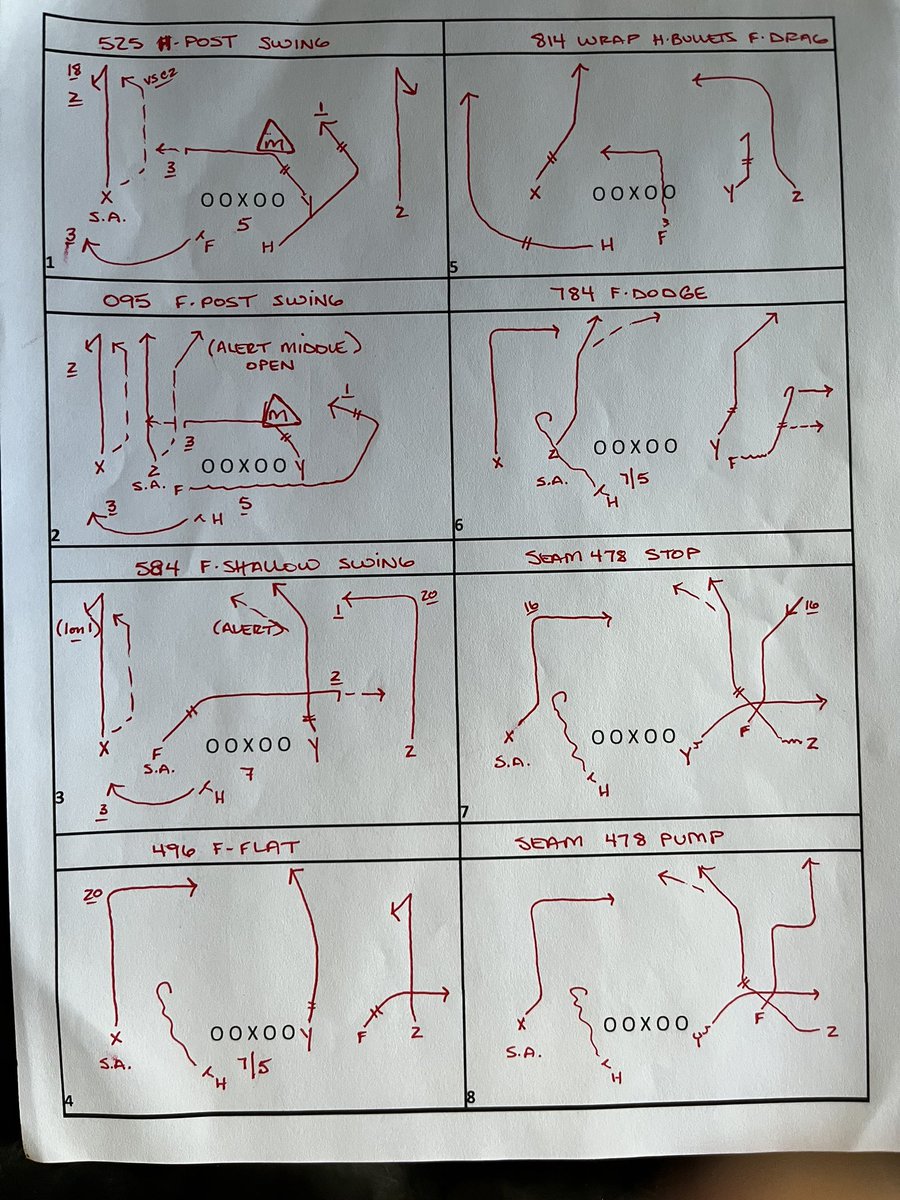 525 H-POST SWING
18
2
VS C2
1
M
3
X
S.A.
OOXOO
Y
5
Z
3
F
H
1
814 WRAP H.BULLETS F.DRAG
X
OOXOO
Y
Z
F
H
5
095 F.POST SWING
(ALERT MIDDLE)
OPEN
2
1
M
3
X
Z
OOXOO
Y
S.A.
F
3
H
5
2
784 F.DODGE
X
Z
OOXOO
Y
F
S.A.
7/5
H
6
584 F.SHALLOW SWING
(1on1)
(ALERT)
1
20
2
X
F
OOXOO
Y
Z
S.A.
7
H
3
3
SEAM 478 STOP
16
16
X
OOXOO
F
Z
S.A.
Y
H
7
496 F-FLAT
20
X
OOXOO
Y
F
Z
S.A.
7/5
H
4
SEAM 478 PUMP
X
OOXOO
F
Z
S.A.
Y
H
8